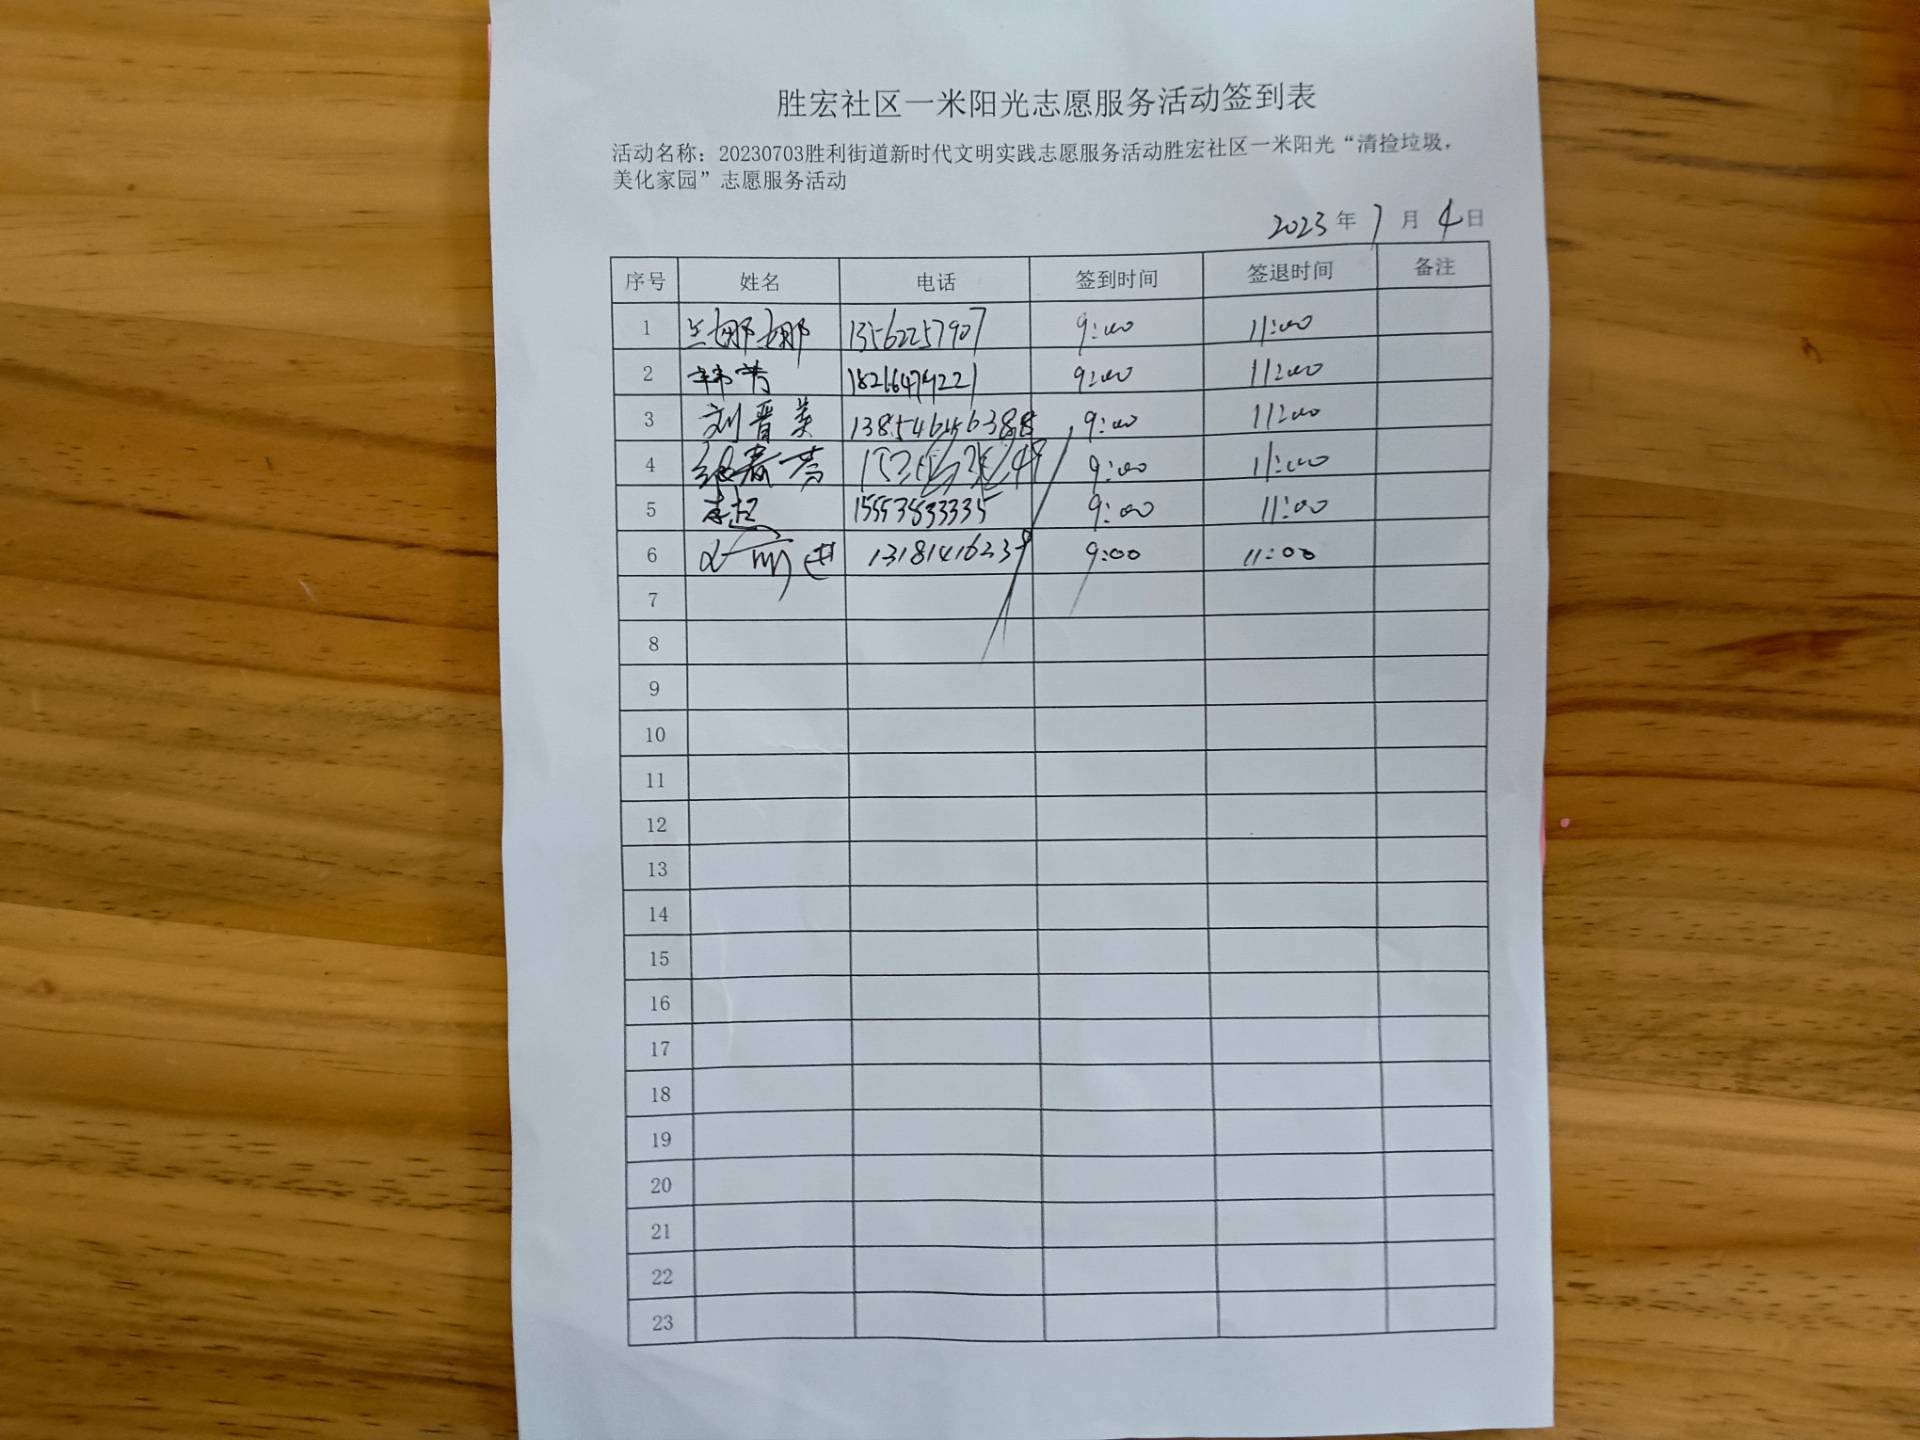 胜宏社区一米阳光志愿服务活动签到表
活动名称：20230703胜利街道新时代文明实践志愿服务活动胜宏社区一米阳光“清捡垃圾，
美化家园”志愿服务活动
2023年7月4日
序号 姓名 电话 签到时间 签退时间 备注
1 兰娜娜 13562257907 9:00 11:00
2 韩芳 9:00 11:00
3 刘晋美 9:00 11:00
4 9:00 11:00
5 李超 15553833335 9:00 11:00
6 13181416239 9:00 11:00
7
8
9
10
11
12
13
14
15
16
17
18
19
20
21
22
23